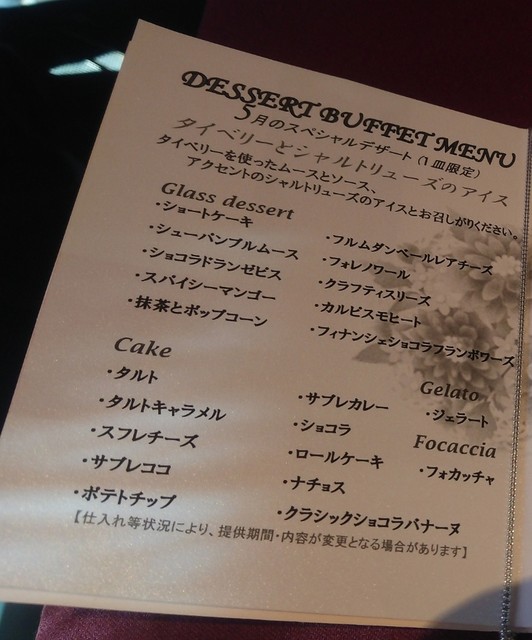 DESSERT BUFFET MENU
5月のスペシャルデザート(1皿限定)
タイベリーとシャルトリューズのアイス
タイベリーを使ったムースとソース、
アクセントのシャルトリューズのアイスとお召しがりください。
Glass dessert
・ショートケーキ
・シューパンブルムース
・ショコラドランゼピス
・スパイシーマンゴー
・抹茶とポップコーン
・フルムダンベールレアチーズ
・フォレノワール
・クラフティスリーズ
・カルピスモヒート
・フィナンシェショコラフランボワーズ
Cake
・タルト
・タルトキャラメル
・スフレチーズ
・サブレココ
・ポテトチップ
・サブレカレー
・ショコラ
・ロールケーキ
・ナチョス
・クラシックショコラバナーヌ
Gelato
・ジェラート
Focaccia
・フォカッチャ
【仕入れ等状況により、提供期間・内容が変更となる場合があります】